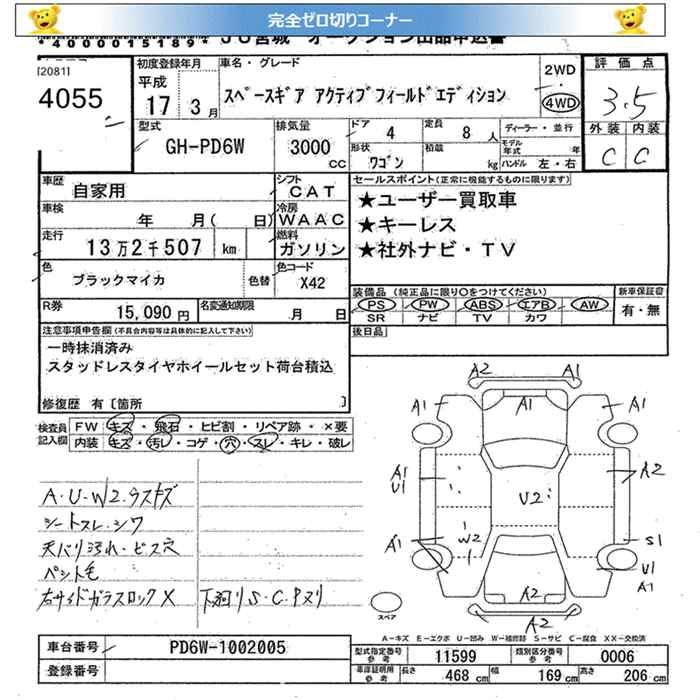 完全ゼロ切りコーナー
*4000015189* JU宮城 オークション出品申込書
[2081]
4055
初度登録年月
平成
17年 3月
車名・グレード
スペースギア アクティブフィールドエディション
2WD
4WD
評価点
3.5
外装 内装
C C
型式
GH-PD6W
排気量
3000
CC
ドア
4
定員
8人
形状
ワゴン
積載
kg
ディーラー・並行
モデル年式 年
ハンドル 左・右
車歴
自家用
シフト
CAT
車検
年 月( 日)
冷房
WAAC
走行
13万2千507 km
燃料
ガソリン
色
ブラックマイカ
色替
色コード
X42
R券
15,090円
名変通知期限
月 日
セールスポイント(正常に機能するものに限ります)
★ユーザー買取車
★キーレス
★社外ナビ・TV
装備品 (純正品に限り○をつけてください)
PS PW ABS エアB AW
SR ナビ TV カワ
新車保証書
有・無
後日品
注意事項申告欄(不具合内容等は具体的に記入して下さい)
一時抹消済み
スタッドレスタイヤホイールセット荷台積込
修復歴 有〔箇所 〕
検査員記入欄
FW キズ・飛石・ヒビ割・リペア跡・×要
内装 キズ・汚レ・コゲ・穴・スレ・キレ・破レ
A・U・W2・ラスキズ
シートスレ・シワ
天バリ汚れ・ビス穴
ペット毛
右サイドガラスロックX
下廻りS・C・Pヌリ
A2 A1
A1 A1 A1
A1
U1
A2
U2
A1
W2
S1
U1
A1
A2
A2
スペア
A-キズ E-エクボ U-凹み W-補修跡 S-サビ C-腐食 XX-交換済
車台番号
PD6W-1002005
登録番号
型式指定番号
参考
11599
類別区分番号
参考
0006
車庫証明用
参考
長さ
468 cm
幅
169 cm
高さ
206 cm